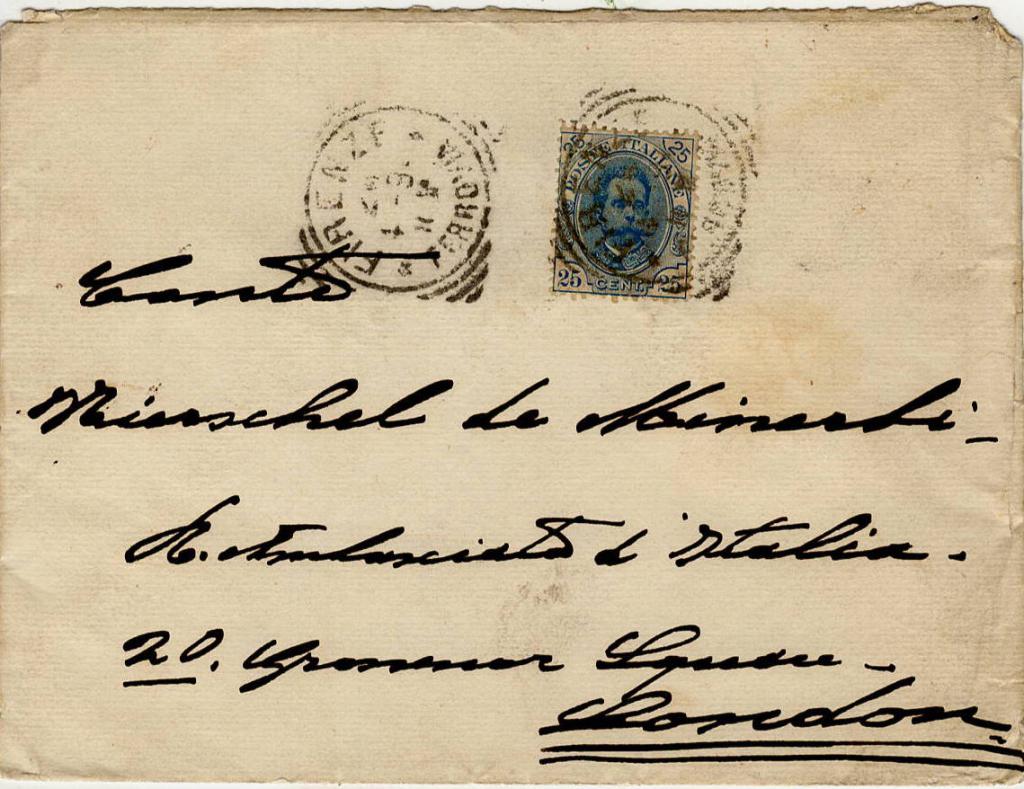 FIRENZE * FERROVIA *
25 25
POSTE ITALIANE
25 CENT. 25
Conte
Mierschel de Minerbi -
R. Ambasciata d'Italia.
20. Grosvenor Square -
London.